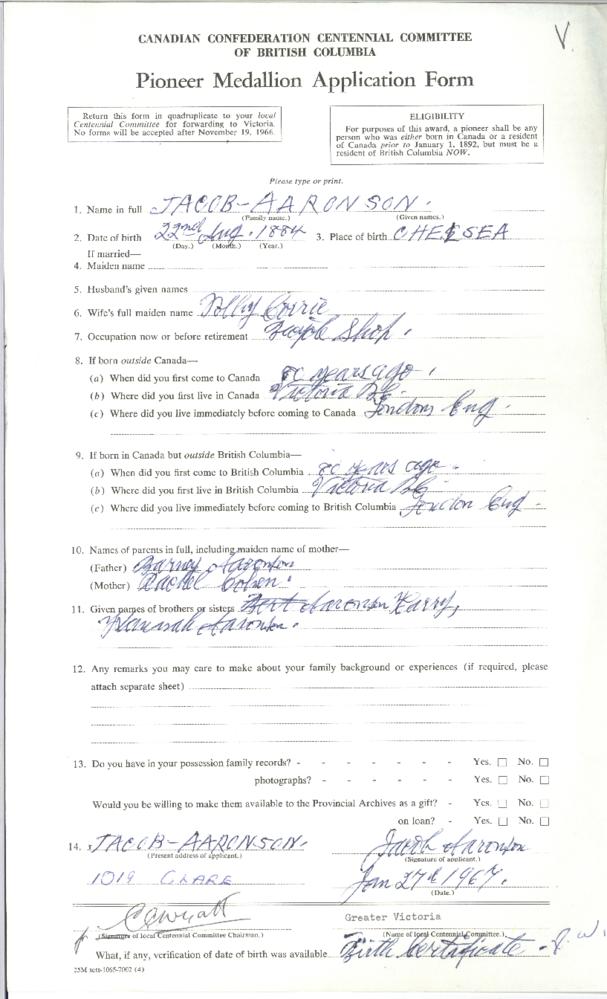 V.
CANADIAN CONFEDERATION CENTENNIAL COMMITTEE
OF BRITISH COLUMBIA
Pioneer Medallion Application Form
Return this form in quadruplicate to your local
Centennial Committee for forwarding to Victoria.
No forms will be accepted after November 19, 1966.
ELIGIBILITY
For purposes of this award, a pioneer shall be any
person who was either born in Canada or a resident
of Canada prior to January 1, 1892, but must be a
resident of British Columbia NOW.
Please type or print.
1. Name in full JACOB-AARONSON.
(Family name.) (Given names.)
2. Date of birth 22nd Aug. 1884 3. Place of birth CHELSEA
(Day.) (Month.) (Year.)
If married—
4. Maiden name
5. Husband's given names
6. Wife's full maiden name
7. Occupation now or before retirement Shop.
8. If born outside Canada—
(a) When did you first come to Canada 80 years ago.
(b) Where did you first live in Canada Victoria BC
(c) Where did you live immediately before coming to Canada London Eng.
9. If born in Canada but outside British Columbia—
(a) When did you first come to British Columbia 80 years ago.
(b) Where did you first live in British Columbia Victoria BC
(c) Where did you live immediately before coming to British Columbia London Eng.
10. Names of parents in full, including maiden name of mother—
(Father) Barney Aaronson
(Mother) Rachel Cohen.
11. Given names of brothers or sisters Bert Aaronson Harry,
Hannah Aaronson.
12. Any remarks you may care to make about your family background or experiences (if required, please
attach separate sheet)
13. Do you have in your possession family records? - - - - - - Yes. No.
photographs? - - - - - - Yes. No.
Would you be willing to make them available to the Provincial Archives as a gift? - Yes. No.
on loan? - Yes. No.
14. JACOB-AARONSON. Jacob Aaronson
(Present address of applicant.) (Signature of applicant.)
1019 CLARE Jan 27th 1967.
(Date.)
Greater Victoria
(Signature of local Centennial Committee Chairman.) (Name of local Centennial Committee.)
What, if any, verification of date of birth was available Birth Certificate
25M sets-1065-7002 (4)